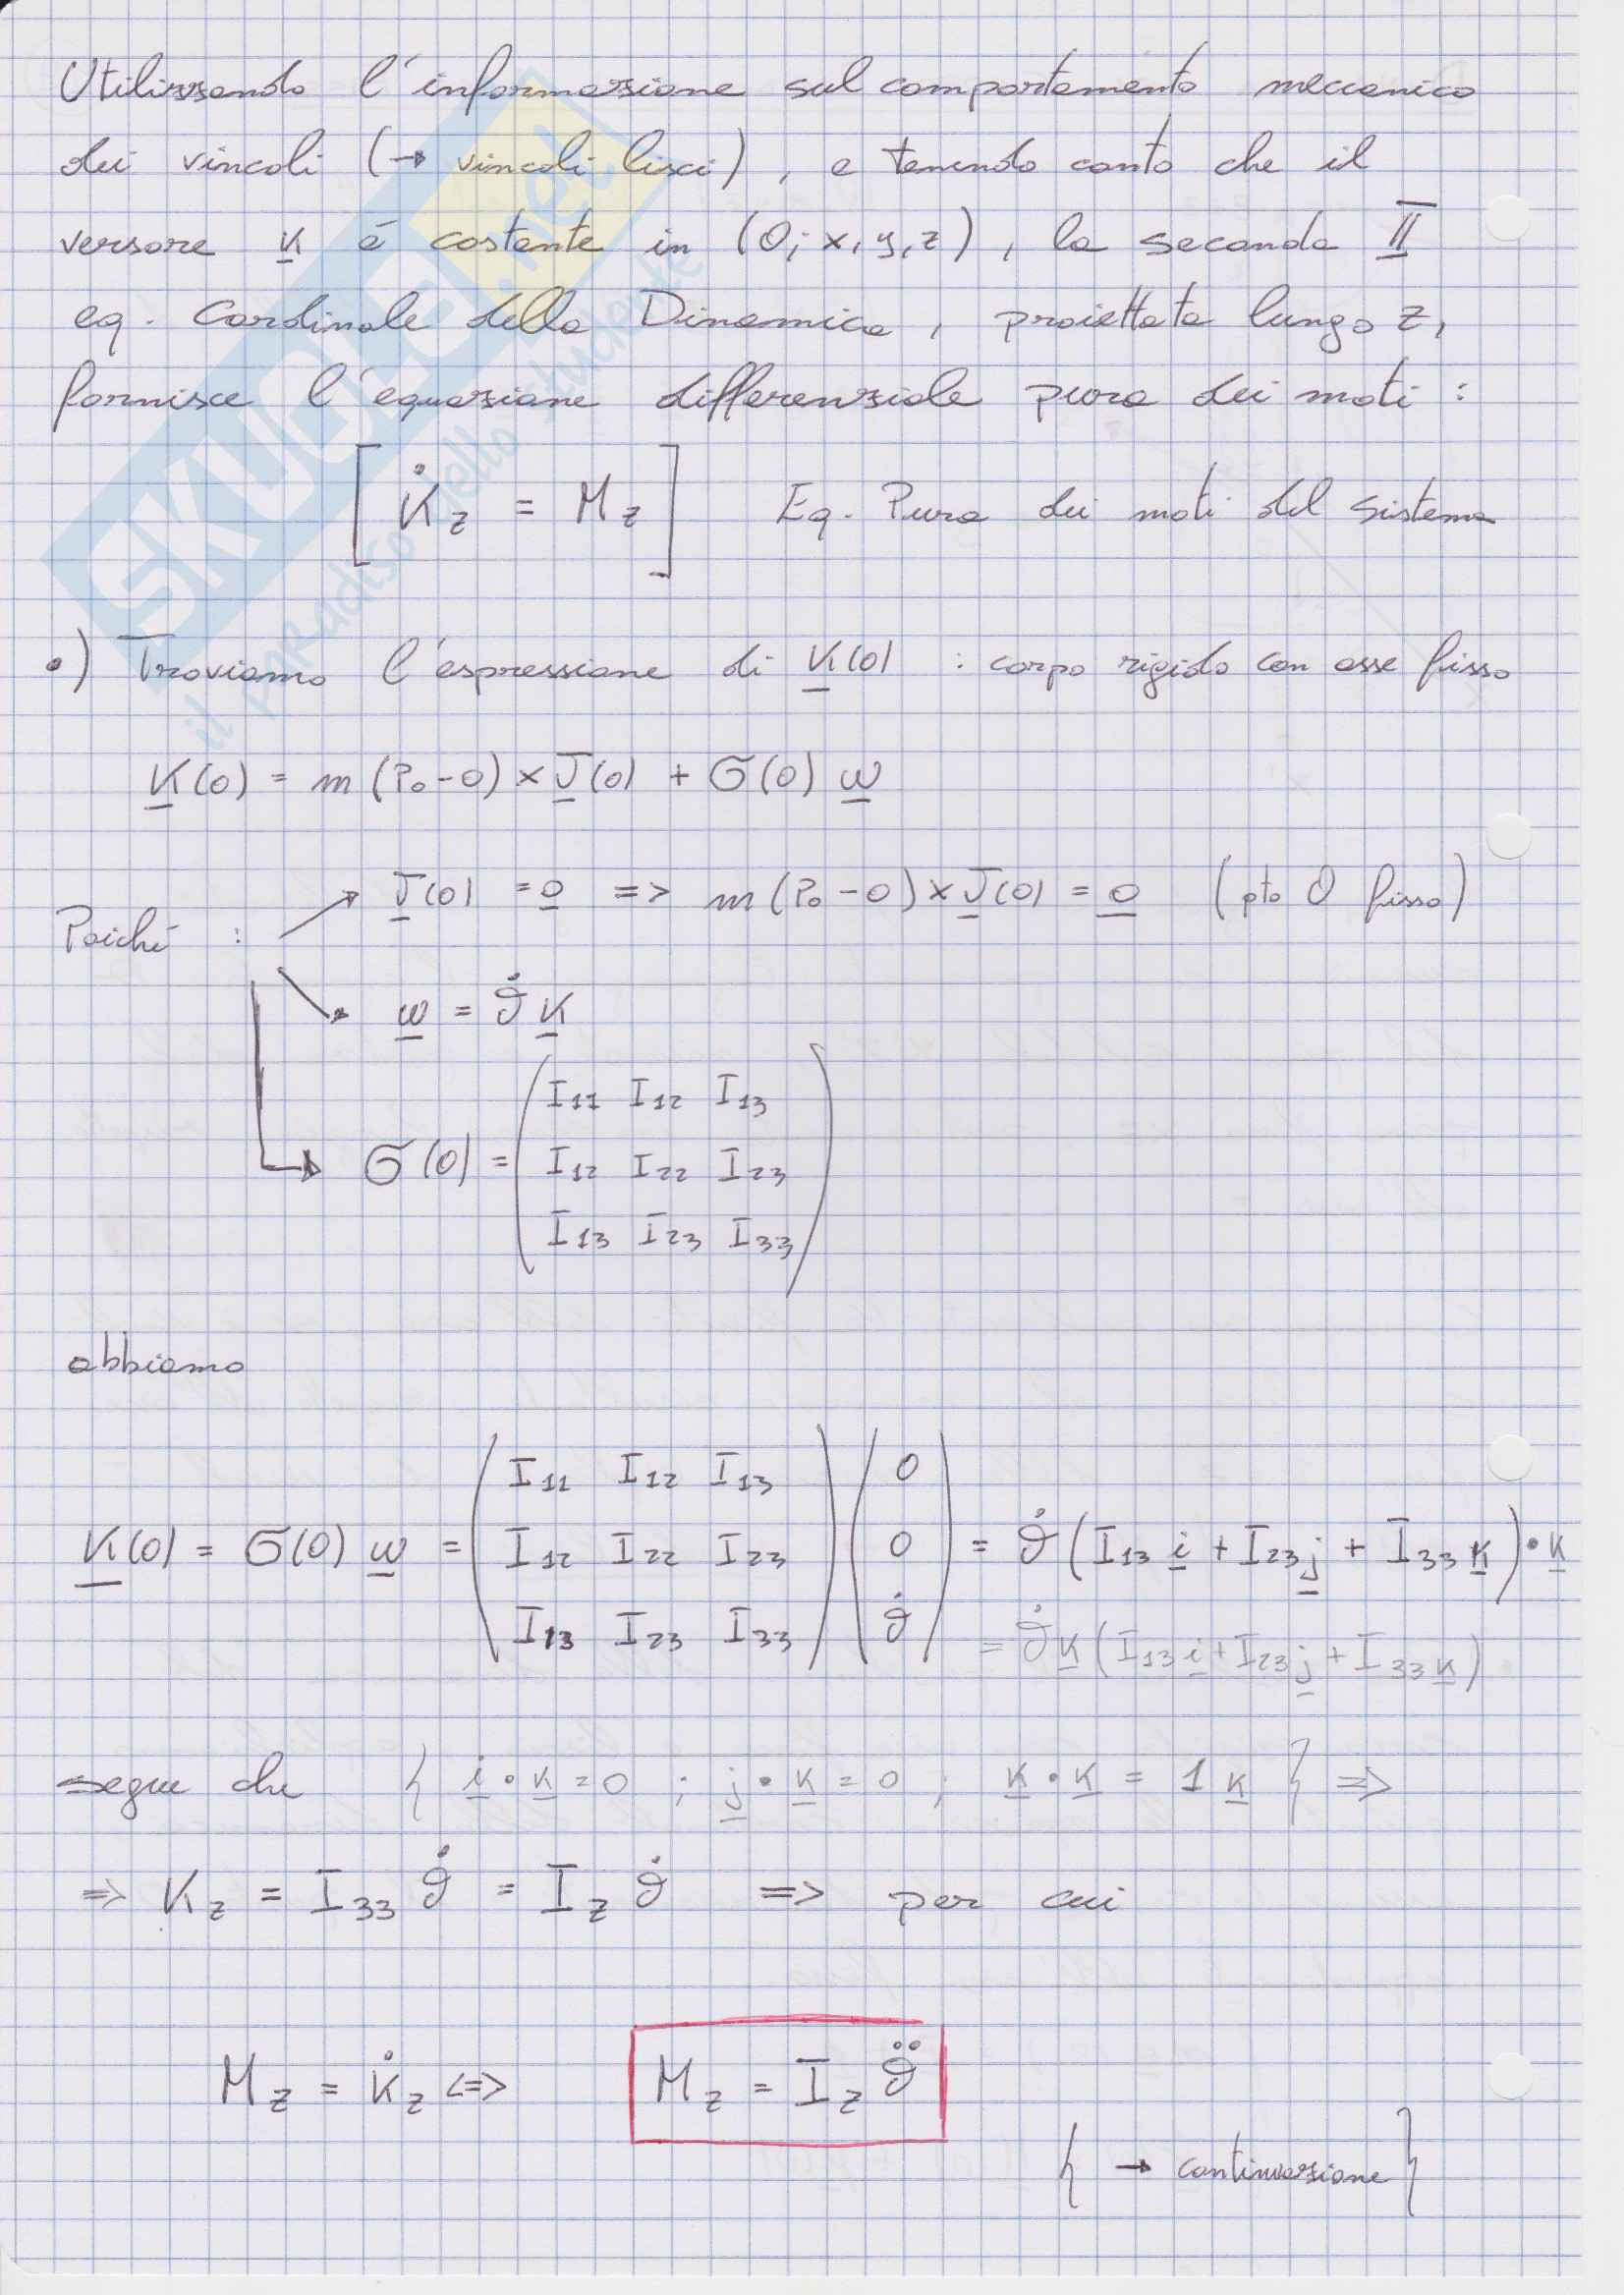 Utilizzando l'informazione sul comportamento meccanico
dei vincoli (→ vincoli lisci), e tenendo conto che il
versore k é costante in (O; x, y, z), la seconda II
eq. Cardinale della Dinamica, proiettata lungo z,
fornisce l'equazione differenziale pura dei moti :
[ K̇z = Mz ] Eq. Pura dei moti del sistema
•) Troviamo l'espressione di K(O) : corpo rigido con asse fisso
K(O) = m (P₀ - O) × v(O) + σ(O) ω
v(O) = 0 => m (P₀ - O) × v(O) = 0 (pto O fisso)
Poiché :
ω = ϑ̇ k
I11 I12 I13
σ(O) = I12 I22 I23
I13 I23 I33
abbiamo
I11 I12 I13 0
K(O) = σ(O) ω = I12 I22 I23 0 = ϑ̇ (I13 i + I23 j + I33 k) • k
I13 I23 I33 ϑ̇ = ϑ̇ k (I13 i + I23 j + I33 k)
segue che { i • k = 0 ; j • k = 0 ; k • k = 1 k } =>
=> Kz = I33 ϑ̇ = Iz ϑ̇ => per cui
Mz = K̇z <=> Mz = Iz ϑ̈
{ → continuazione }
SKUOLA.net
il paradiso dello studente